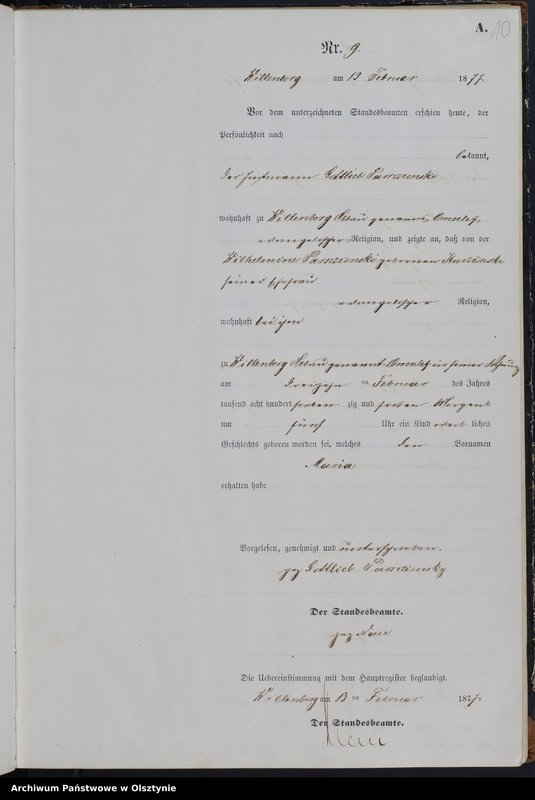 A. 10
Nr. 9.
Willenberg am 13 Februar 1877.
Vor dem unterzeichneten Standesbeamten erschien heute, der
Persönlichkeit nach
bekannt,
der Gottlieb
wohnhaft zu Willenberg genannt Omulef
evangelischer Religion, und zeigte an, daß von der
Wilhelmine geborenen
seiner Ehefrau
evangelischer Religion,
wohnhaft bei ihm
zu Willenberg genannt Omulef in seiner Wohnung
am dreizehn ten Februar des Jahres
tausend acht hundert sieben zig und sieben Morgens
um fünf Uhr ein Kind weib lichen
Geschlechts geboren worden sei, welches den Vornamen
Maria
erhalten habe
Vorgelesen, genehmigt und unterschrieben.
gez Gottlieb
Der Standesbeamte.
gez
Die Uebereinstimmung mit dem Hauptregister beglaubigt.
Willenberg am 13 ten Februar 1877
Der Standesbeamte.
Archiwum Państwowe w Olsztynie